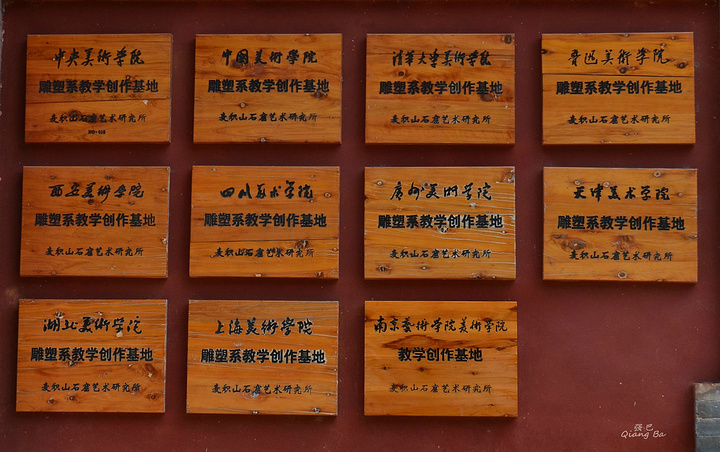 中央美術学院
雕塑系教学创作基地
麦积山石窟艺术研究所
中国美術學院
雕塑系教学创作基地
麦积山石窟艺术研究所
清華大学美術学院
雕塑系教学创作基地
麦积山石窟艺术研究所
鲁迅美術学院
雕塑系教学创作基地
麦积山石窟艺术研究所
西安美術学院
雕塑系教学创作基地
麦积山石窟艺术研究所
四川美术学院
雕塑系教学创作基地
麦积山石窟艺术研究所
廣州美術学院
雕塑系教学创作基地
麦积山石窟艺术研究所
天津美术学院
雕塑系教学创作基地
麦积山石窟艺术研究所
湖北美術学院
雕塑系教学创作基地
麦积山石窟艺术研究所
上海美術學院
雕塑系教学创作基地
麦积山石窟艺术研究所
南京藝術学院美術学院
教学创作基地
麦积山石窟艺术研究所
强·巴
Qiang Ba